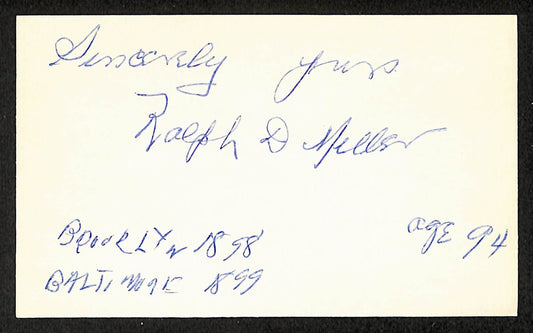 Sincerely yours
Ralph D Miller
BROOKLYN 1898
age 94
BALTIMORE 1899